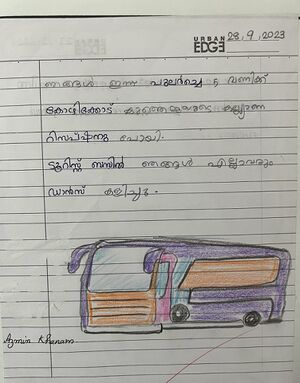 URBAN
EDGE
28.9.2023
ഞങ്ങൾ ഇന്ന് പുലർച്ചെ 5 മണിക്ക്
കോഴിക്കോട് കല്ല്യാണ
റിസപ്ഷനു പോയി.
ടൂറിസ്റ്റ് ബസിൽ ഞങ്ങൾ എല്ലാവരും
ഡാൻസ് കളിച്ചു.
Azmin Khanam